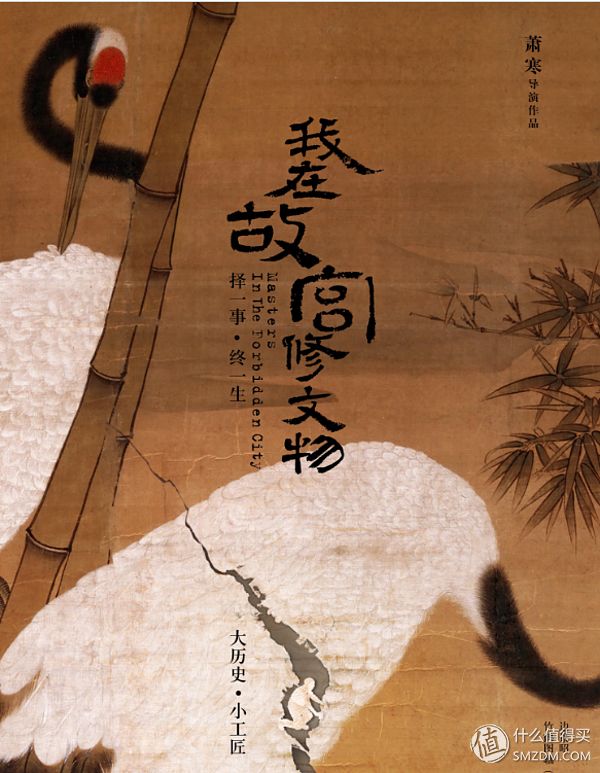 萧寒导演作品
我在故宫修文物
Masters
In The Forbidden City
择一事·终一生
大历史·小工匠
值 什么值得买
SMZDM.COM